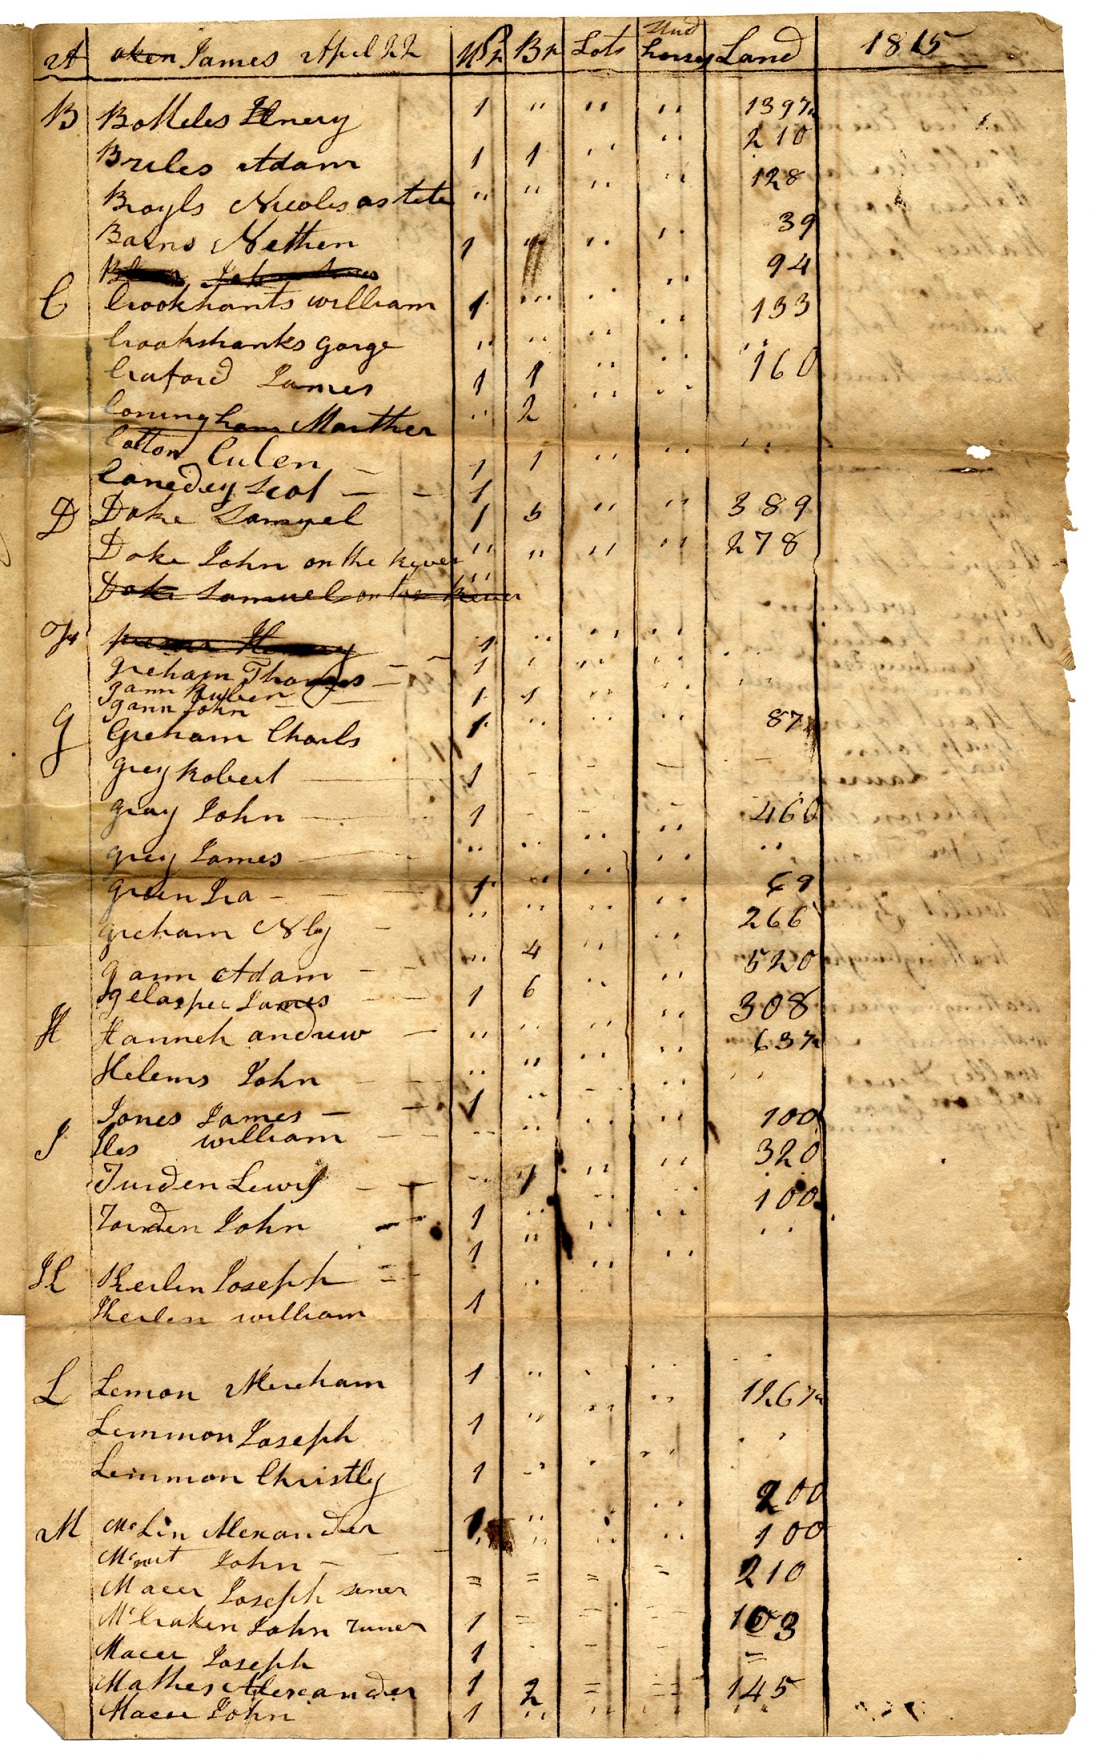 A oken James April 22 Wp Br Lots Stud horses Land 1815
B Botteles Henery 1 " " " 139½
Briles Adam 1 1 " " 210
Broyls Nicoles astate " " " " 128
Barns Nethen 1 " " " 39
John 94
C Crookhants william 1 " " " 133
Crookshanks gorge " " " "
Craford James 1 1 " " 160
Coningham Marther " 2 " "
Cotton Culen 1 1 " "
Canedey Scot 1
D Doke Samuel 1 5 " " 389
Doke John on the River " " " " 278
Doke Samuel on the River "
F Henery 1 " " "
greham Thomas 1
gann Ruben
gann John 1 1 " "
G Greham Charls 1 " " " 87
grey Robert 1
gray John 1 460
grey James " " " " "
green Ira 1 " " " 69
greham " " " " 266
gann Adam " 4 " " 520
gelasper James 1 6 " " 308
H Hanneh andrew " " " " 637
Helems John " " " "
Jones James 1 100
I Iles william 320
Jurden Lewis 1 " " 100
Jourden John 1 " " "
1 " " "
K Kerlen Joseph
Kerlen william 1
L Lemon Abreham 1 " " " 1267
Lemmon Joseph 1 " " "
Lemmon Christly 1
200
M McLin Alexander 1 " " " 100
John
Macer Joseph sener = = = = 210
McCraken John Juner 1 = = = 103
Macer Joseph 1 - - - =
Mathes Alexander 1 2 = = 145
Macer John 1 " " "